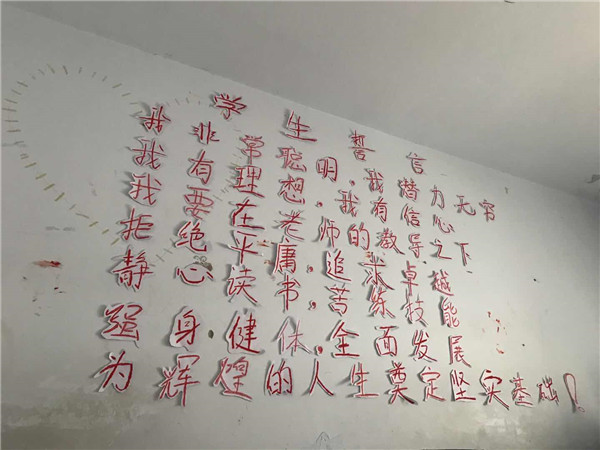 学生誓言
我非常聪明，我潜力无穷
我有理想，我有信心
我要在老师的教导之下
拒绝平庸，追求卓越
静心读书，苦练技能
强身健体，全面发展
为辉煌的人生奠定坚实基础！